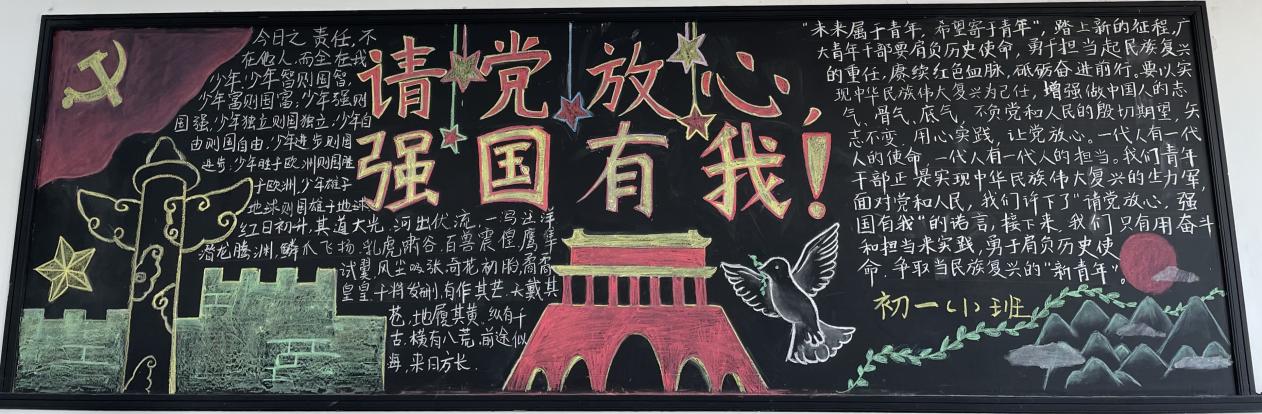 请党放心,
强国有我!
今日之责任,不
在他人,而全在我
少年,少年智则国智,
少年富则国富;少年强则
国强,少年独立则国独立;少年自
由则国自由,少年进步则国
进步;少年胜于欧洲则国胜
于欧洲,少年雄于
地球则国雄于地球
红日初升,其道大光,河出伏流,一泻汪洋
潜龙腾渊,鳞爪飞扬,乳虎啸谷,百兽震惶鹰隼
试翼,风尘吸张,奇花初胎,矞矞
皇皇,干将发硎,有作其芒,天戴其
苍,地履其黄,纵有千
古,横有八荒,前途似
海,来日方长.
“未来属于青年,希望寄于青年”,踏上新的征程,广
大青年干部要肩负历史使命,勇于担当起民族复兴
的重任,赓续红色血脉,砥砺奋进前行。要以实
现中华民族伟大复兴为己任,增强做中国人的志
气,骨气,底气,不负党和人民的殷切期望,矢
志不变,用心实践,让党放心。一代人有一代
人的使命,一代人有一代人的担当。我们青年
干部正是实现中华民族伟大复兴的生力军,
面对党和人民,我们许下了“请党放心,强
国有我”的诺言,接下来,我们只有用奋斗
和担当来实践,勇于肩负历史使
命,争取当民族复兴的“新青年”。
初一(小)班